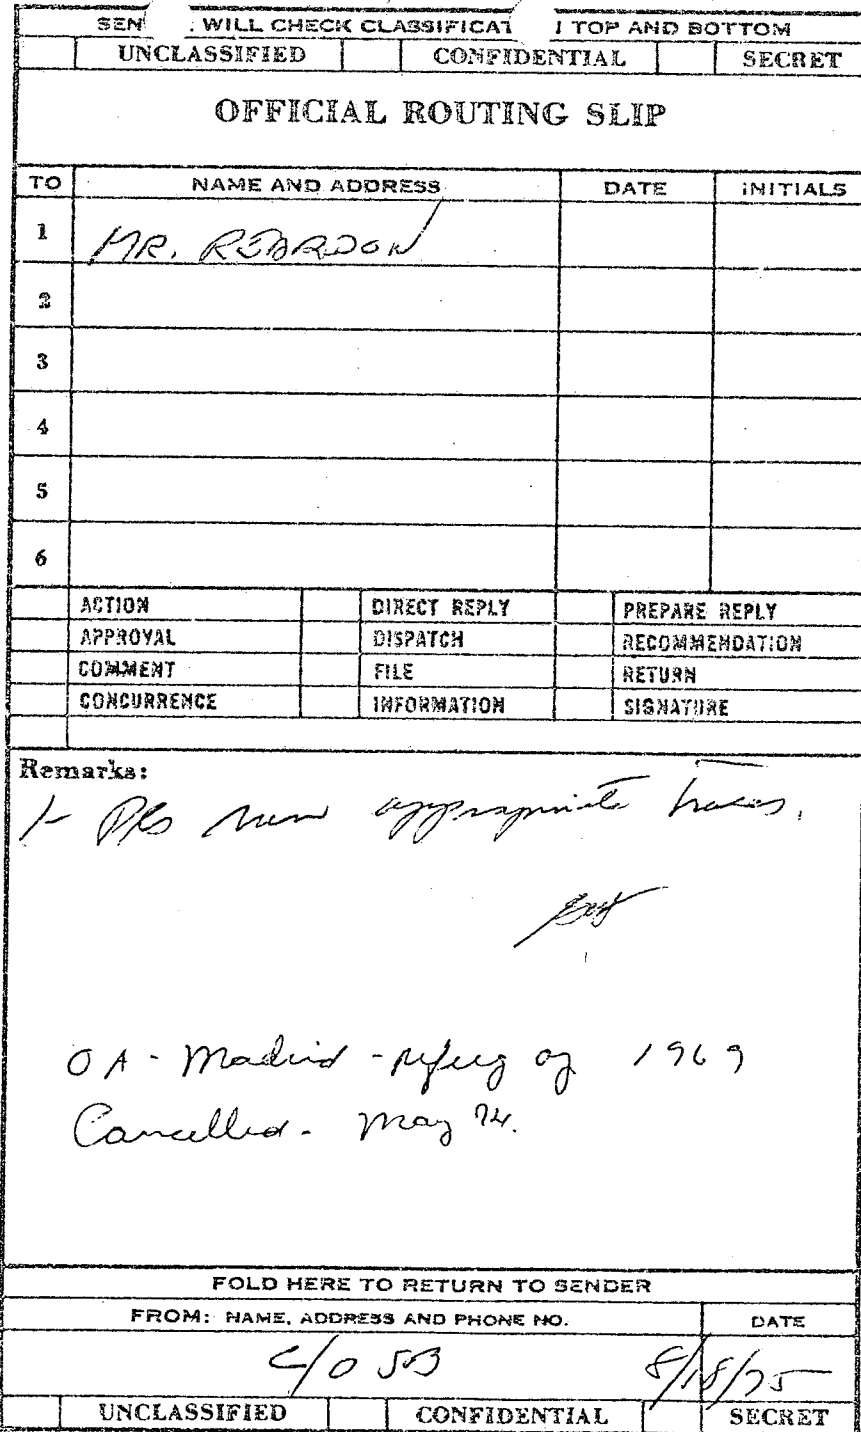 SEN WILL CHECK CLASSIFICAT TOP AND BOTTOM
UNCLASSIFIED CONFIDENTIAL SECRET
OFFICIAL ROUTING SLIP
TO NAME AND ADDRESS DATE INITIALS
1 MR. REARDON
2
3
4
5
6
ACTION DIRECT REPLY PREPARE REPLY
APPROVAL DISPATCH RECOMMENDATION
COMMENT FILE RETURN
CONCURRENCE INFORMATION SIGNATURE
Remarks:
1- Pls run appropriate traces.
OA - Madrid - 1969
Cancelled - May 74.
FOLD HERE TO RETURN TO SENDER
FROM: NAME, ADDRESS AND PHONE NO. DATE
C/OSB 8/18/75
UNCLASSIFIED CONFIDENTIAL SECRET